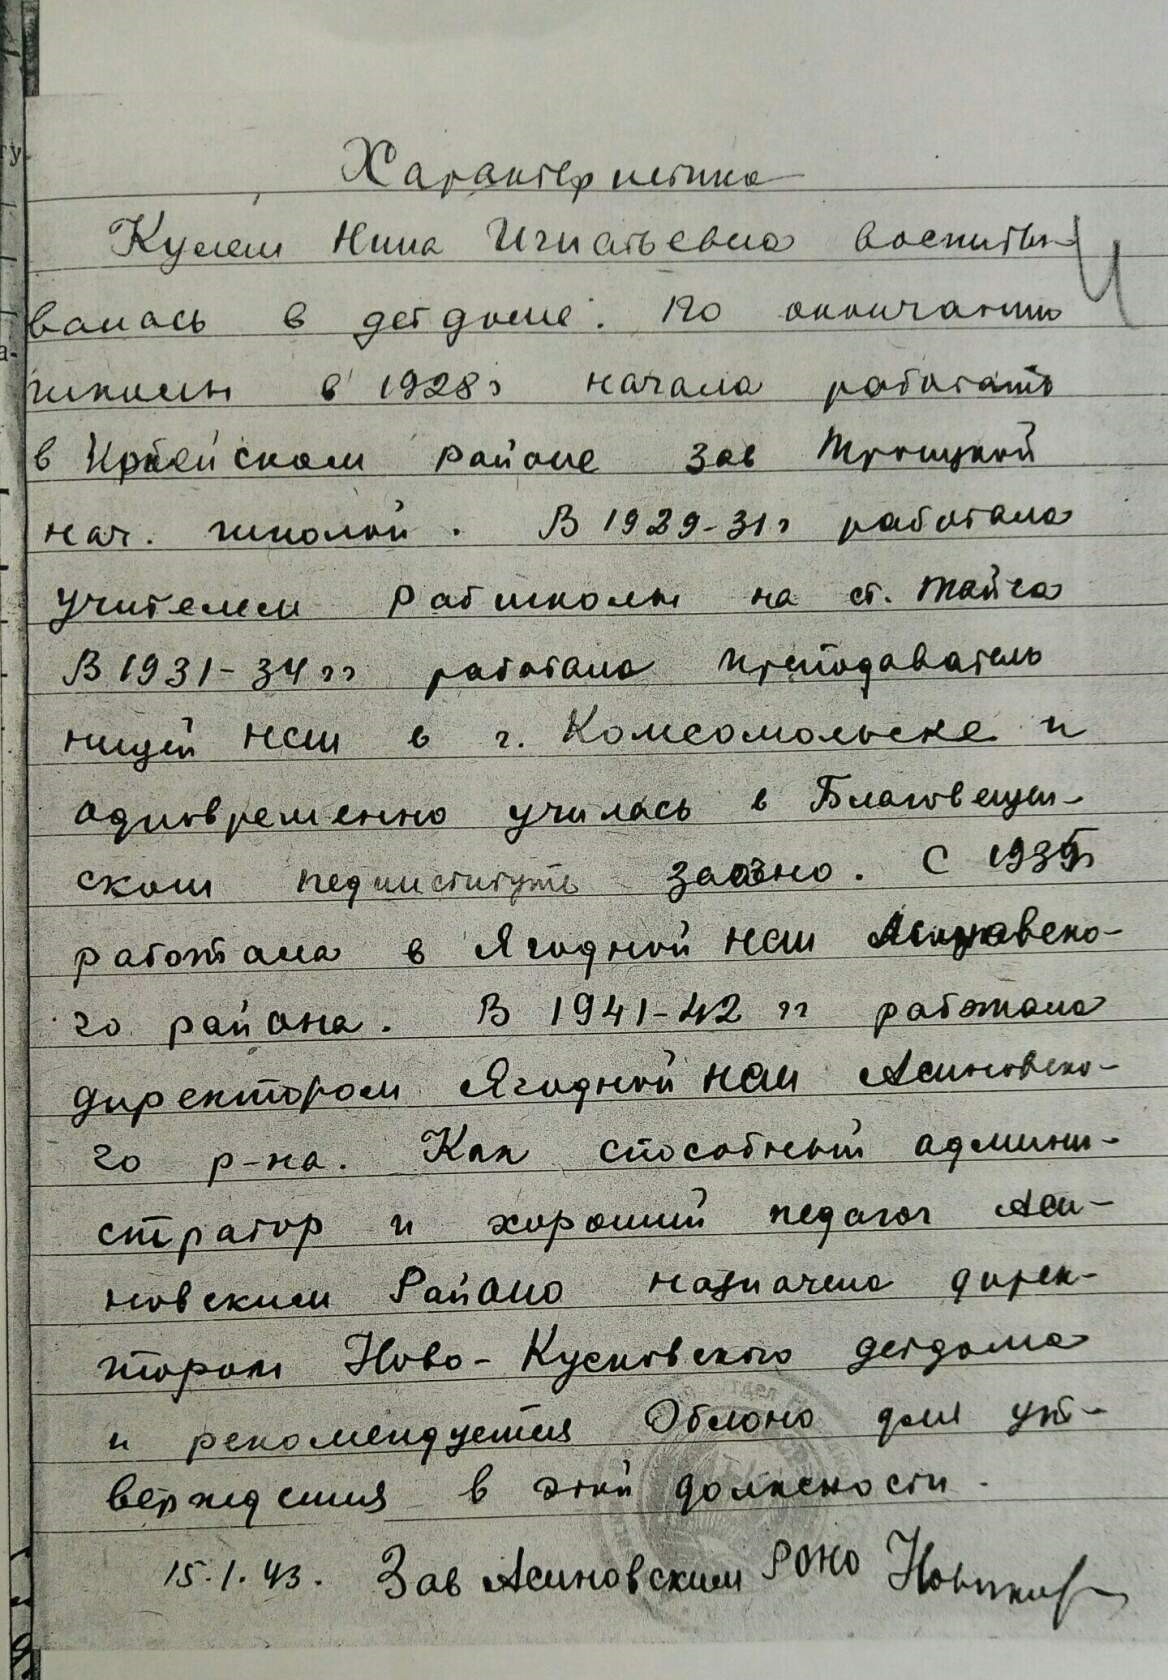 Характеристика
Кулеш Нина Игнатьевна воспиты-
валась в детдоме. По окончании
школы в 1928г начала работать
в Ирбейском районе зав Троицкой
нач. школой. В 1929-31г работала
учителем Рабшколы на ст. Тайга
В 1931-34 гг работала преподаватель
ницей нсш в г. Комсомольске и
одновременно училась в Благовещен-
ском пединституте заочно. С 1935г
работала в Ягодной нсш Асиновско-
го района. В 1941-42 гг работала
директором Ягодной нсш Асиновско-
го р-на. Как способный админи-
стратор и хороший педагог Аси-
новским Районо назначена дирек-
тором Ново-Кусковского детдома
и рекомендуется Облоно для ут-
верждения в этой должности.
15.1.43. Зав Асиновским РОНО Новиков